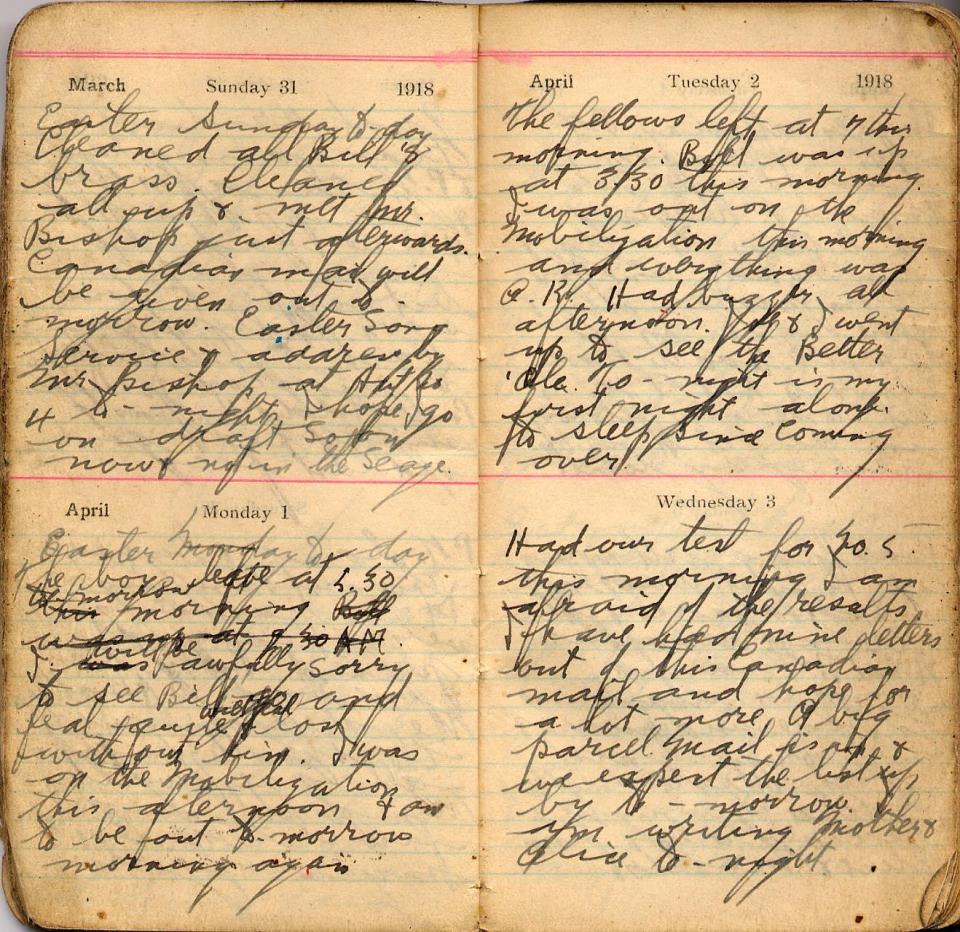 March Sunday 31 1918
Easter Sunday to day
Cleaned all Bill's
brass. Cleaned
all up & met Mr.
Bishop just afterwards.
Canadian mail will
be given out to-
morrow. Easter Song
Service & address by
Mr Bishop at Hut
4 to-night. I hope I go
on draft soon
now in the
April Monday 1
Easter Monday to-day
The boys leave at 5.30
to morrow
this morning Bill
was up at 3 30 AM.
will be
I was awfully sorry
to see Bill go and
feel quite lost
without him. I was
on the Mobilization
this afternoon & am
to be out to-morrow
morning again
April Tuesday 2 1918
The fellows left at 7 this
morning. Bill was up
at 3/30 this morning.
I was out on the
Mobilization this morning
and everything was
O.K. Had buzzer all
afternoon. & I went
up to see the Better
'Ole. To-night is my
first night alone
to sleep since coming
over.
Wednesday 3
Had our test for
this morning I am
afraid of the results
I have had nine letters
out of this Canadian
mail and hope for
a lot more. A big
parcel mail is in &
we expect the list up
by to-morrow. I
am writing Mother &
Alice to-night.